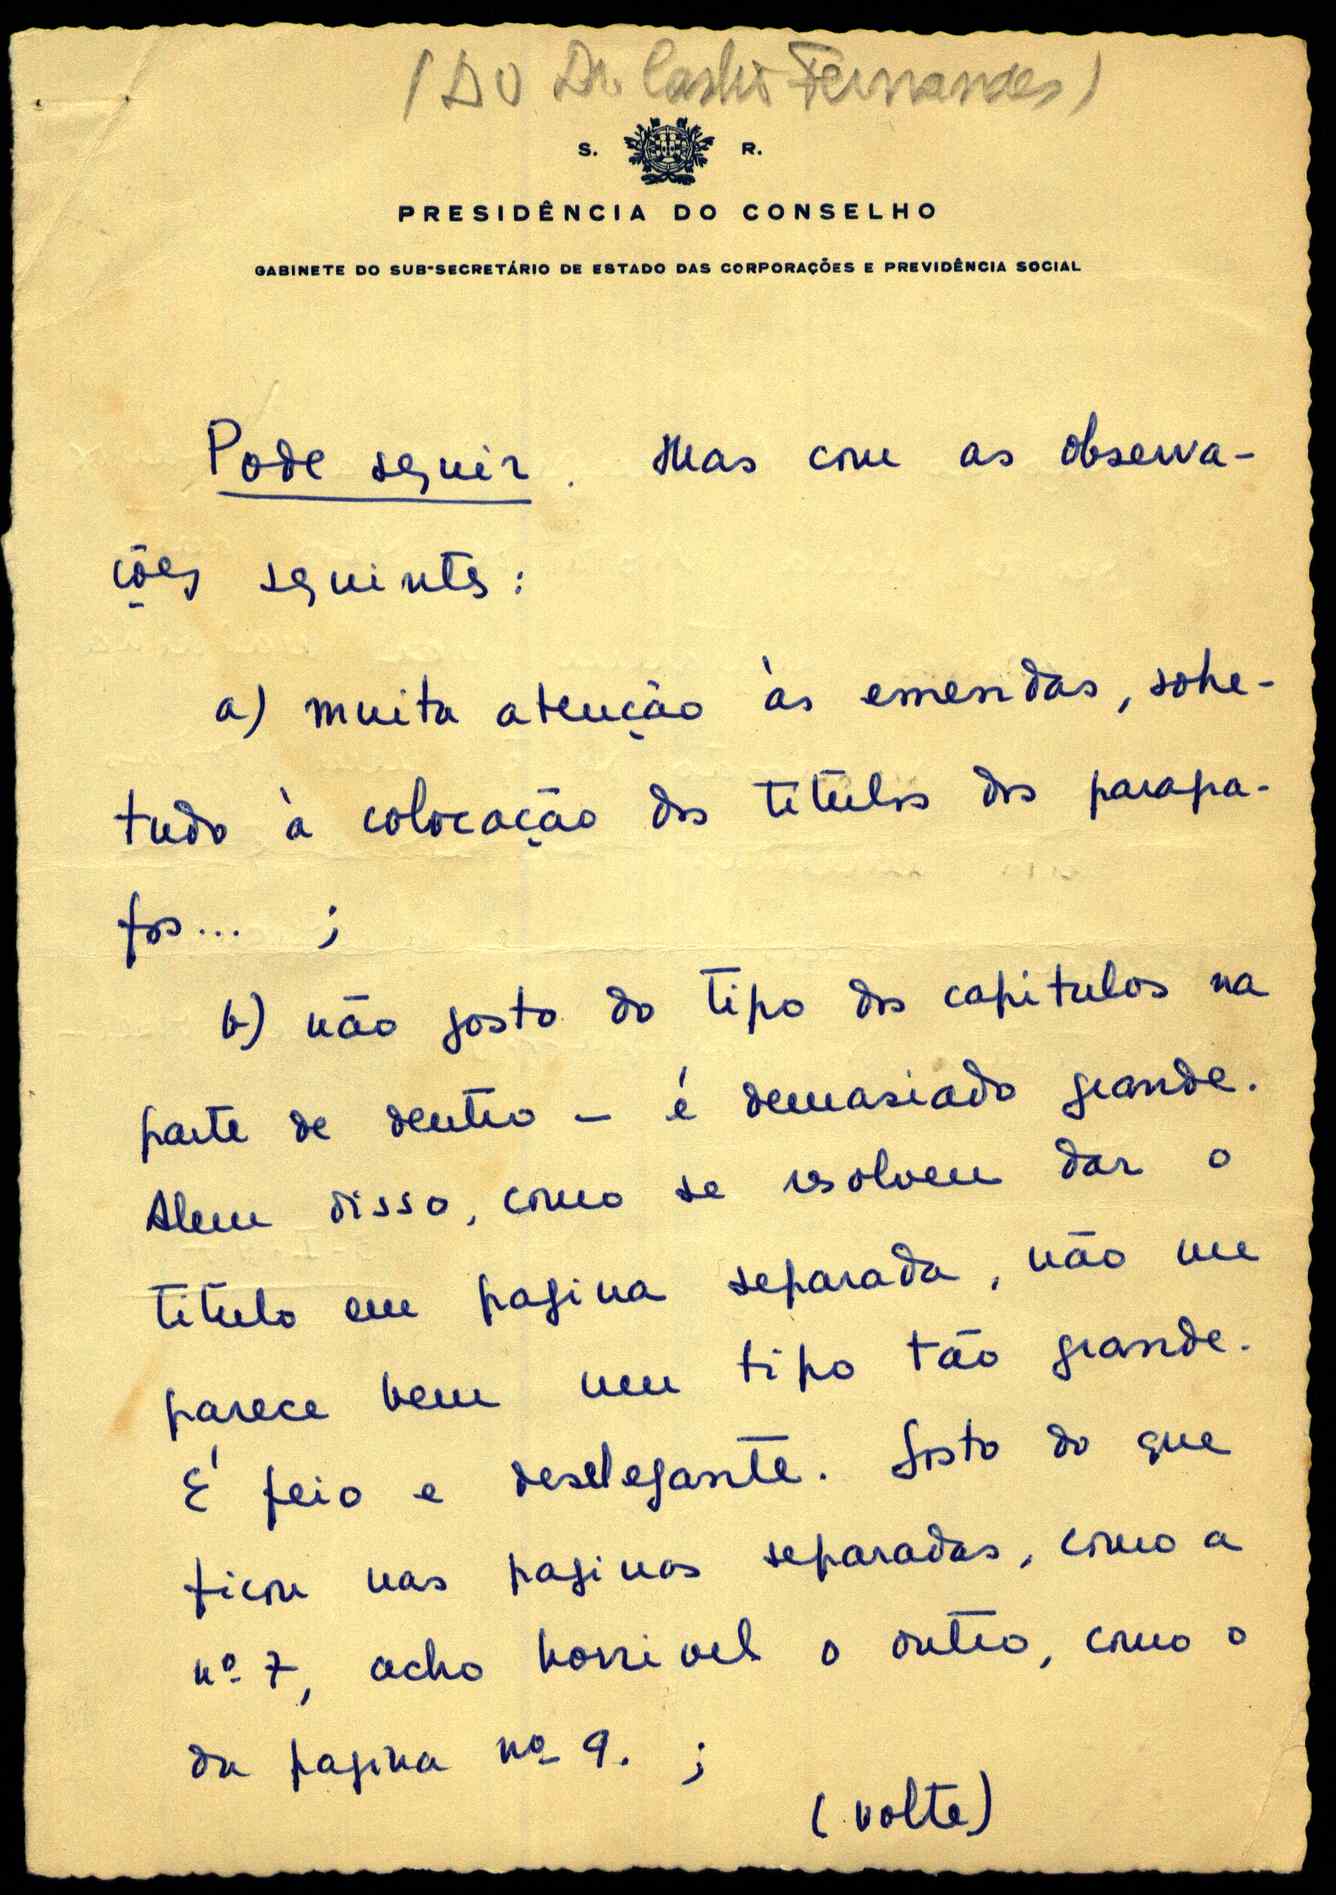 (Do Dr. Castro Fernandes)
S. R.
PRESIDÊNCIA DO CONSELHO
GABINETE DO SUB-SECRETÁRIO DE ESTADO DAS CORPORAÇÕES E PREVIDÊNCIA SOCIAL
Pode seguir. Mas com as observa-
ções seguintes:
a) muita atenção às emendas, sobre-
tudo à colocação dos titulos dos paragra-
fos... ;
b) não gosto do tipo dos capitulos na
parte de dentro - é demasiado grande.
Alem disso, como se resolveu dar o
titulo em pagina separada, não me
parece bem um tipo tão grande.
É feio e deselegante. Gosto do que
ficou nas paginas separadas, como a
nº 7, acho horrivel o outro, como o
da pagina nº 9. ;
(volte)